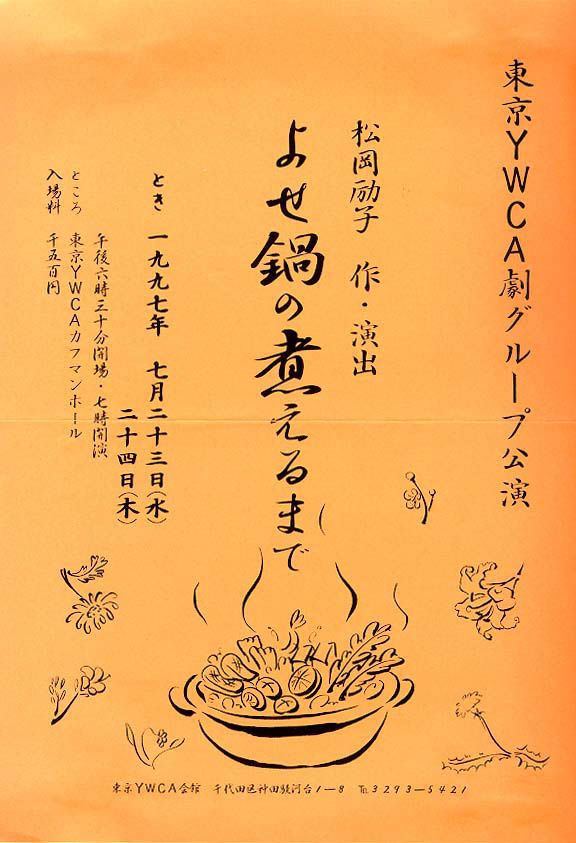 東京YWCA劇グループ公演
松岡励子 作・演出
よせ鍋の煮えるまで
とき 一九九七年 七月二十三日(水)
二十四日(木)
午後六時三十分開場・七時開演
ところ 東京YWCAカフマンホール
入場料 千五百円
東京YWCA会館 千代田区神田駿河台1-8 ℡3293-5421